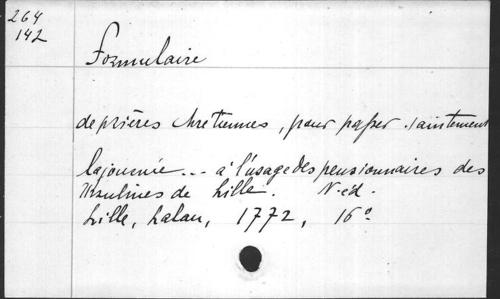 264
142
Formulaire
de prières chretiennes, pour passer saintement
la journée... à l'usage des pensionnaires des
Ursulines de Lille. N. éd.
Lille, Lalau, 1772, 16º